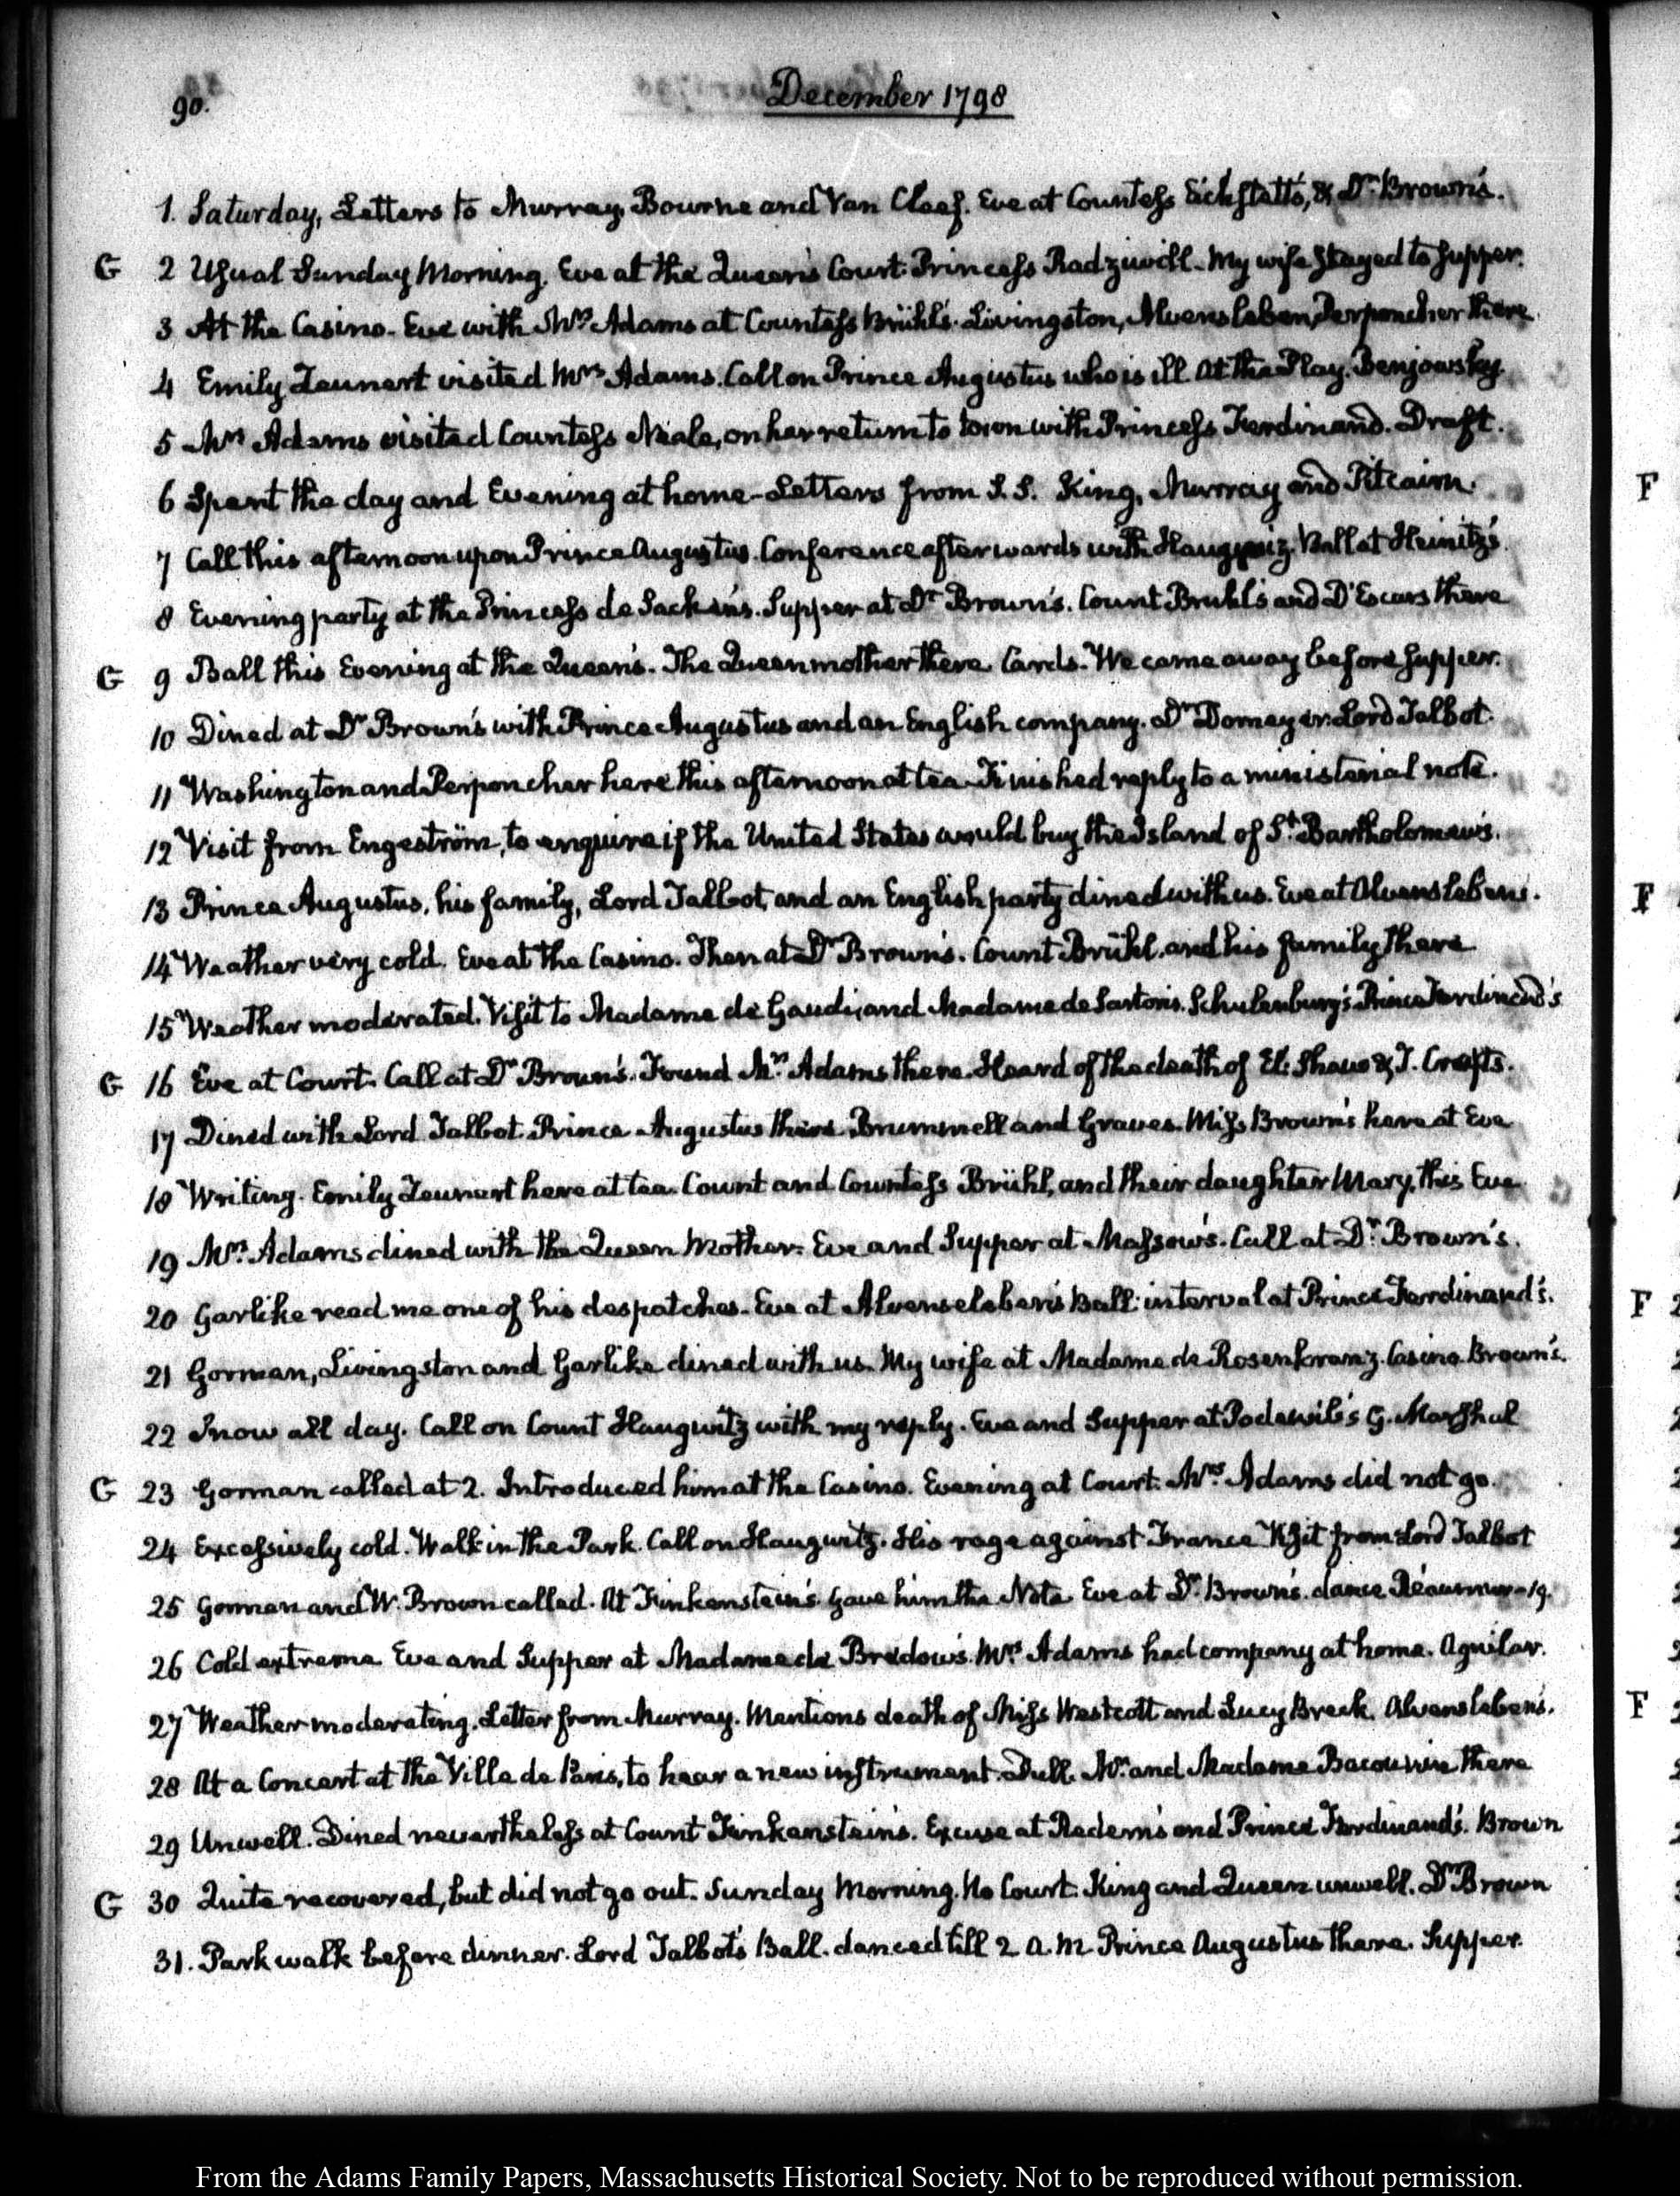 90.
December 1798
1. Saturday, Letters to Murray, Bourne and Van Cleef. Eve at Countess Eickstatt's, & Dr. Brown's.
G 2 Usual Sunday Morning. Eve at the Queen's Court. Princess Radziwill. My wife stayed to supper.
3 At the Casino. Eve with Mrs Adams at Countess Brühl's. Livingston, Alvensleben, Perponcher there
4 Emily Leunert visited Mrs Adams. Call on Prince Augustus who is ill. At the Play. Benjowsky.
5 Mrs Adams visited Countess Neale, on her return to town with Princess Ferdinand. Draft.
6 Spent the day and Evening at home. Letters from S.S. King, Murray and Pitcairn.
7 Call this afternoon upon Prince Augustus. Conference afterwards with Haugwitz. Ball at Heinitz's.
8 Evening party at the Princess de Sacken's. Supper at Dr Brown's. Count Bruhl's and D'Escars there
G 9 Ball this Evening at the Queen's. The Queen mother there. Cards. We came away before supper.
10 Dined at Dr Brown's with Prince Augustus and an English company. Dr Domeyer. Lord Talbot.
11 Washington and Perponcher here this afternoon at tea. Finished reply to a ministerial note.
12 Visit from Engeström, to enquire if the United States would buy the Island of St. Bartholomew's.
13 Prince Augustus, his family, Lord Talbot, and an English party dined with us. Eve at Alvensleben's.
14 Weather very cold. Eve at the Casino. Then at Dr Brown's. Count Brühl, and his family there
15 Weather moderated. Visit to Madame de Gaudi, and Madame de Sartoris. Schulenburg's. Prince Ferdinand's
G 16 Eve at Court. Call at Dr Brown's. Found Mrs Adams there. Heard of the death of El: Shaw & T. Crafts.
17 Dined with Lord Talbot. Prince Augustus there. Brummell and Graves. Miss Brown's here at Eve
18 Writing. Emily Leunert here at tea. Count and Countess Brühl, and their daughter Mary, this Eve.
19 Mrs. Adams dined with the Queen Mother. Eve and Supper at Massow's. Call at Dr. Brown's.
20 Garlike read me one of his despatches. Eve at Alvensleben's Ball: interval at Prince Ferdinand's.
21 Gorman, Livingston and Garlike dined with us. My wife at Madame de Rosenkranz. Casino. Brown's.
22 Snow all day. Call on Count Haugwitz with my reply. Eve and Supper at Podewils's G. Marshal
G 23 Gorman called at 2. Introduced him at the Casino. Evening at Court. Mrs. Adams did not go.
24 Excessively cold. Walk in the Park. Call on Haugwitz. His rage against France. Visit from Lord Talbot
25 Gorman and W. Brown called. At Finkenstein's. Gave him the Note. Eve at Dr. Brown's. dance Réaumur -19.
26 Cold extreme. Eve and Supper at Madame de Bredow's. Mrs Adams had company at home. Aguilar.
27 Weather moderating. Letter from Murray. Mentions death of Miss Westcott and Lucy Breck. Alvensleben's.
28 At a Concert at the Ville de Paris, to hear a new instrument. Dull. Mr. and Madame there
29 Unwell. Dined nevertheless at Count Finkenstein's. Excuse at Redern's and Prince Ferdinand's. Brown
G 30 Quite recovered, but did not go out. Sunday Morning. No Court. King and Queen unwell. Dr Brown
31. Park walk before dinner. Lord Talbot's Ball. danced till 2 A.M. Prince Augustus there. Supper.
F
F
F
F
From the Adams Family Papers, Massachusetts Historical Society. Not to be reproduced without permission.